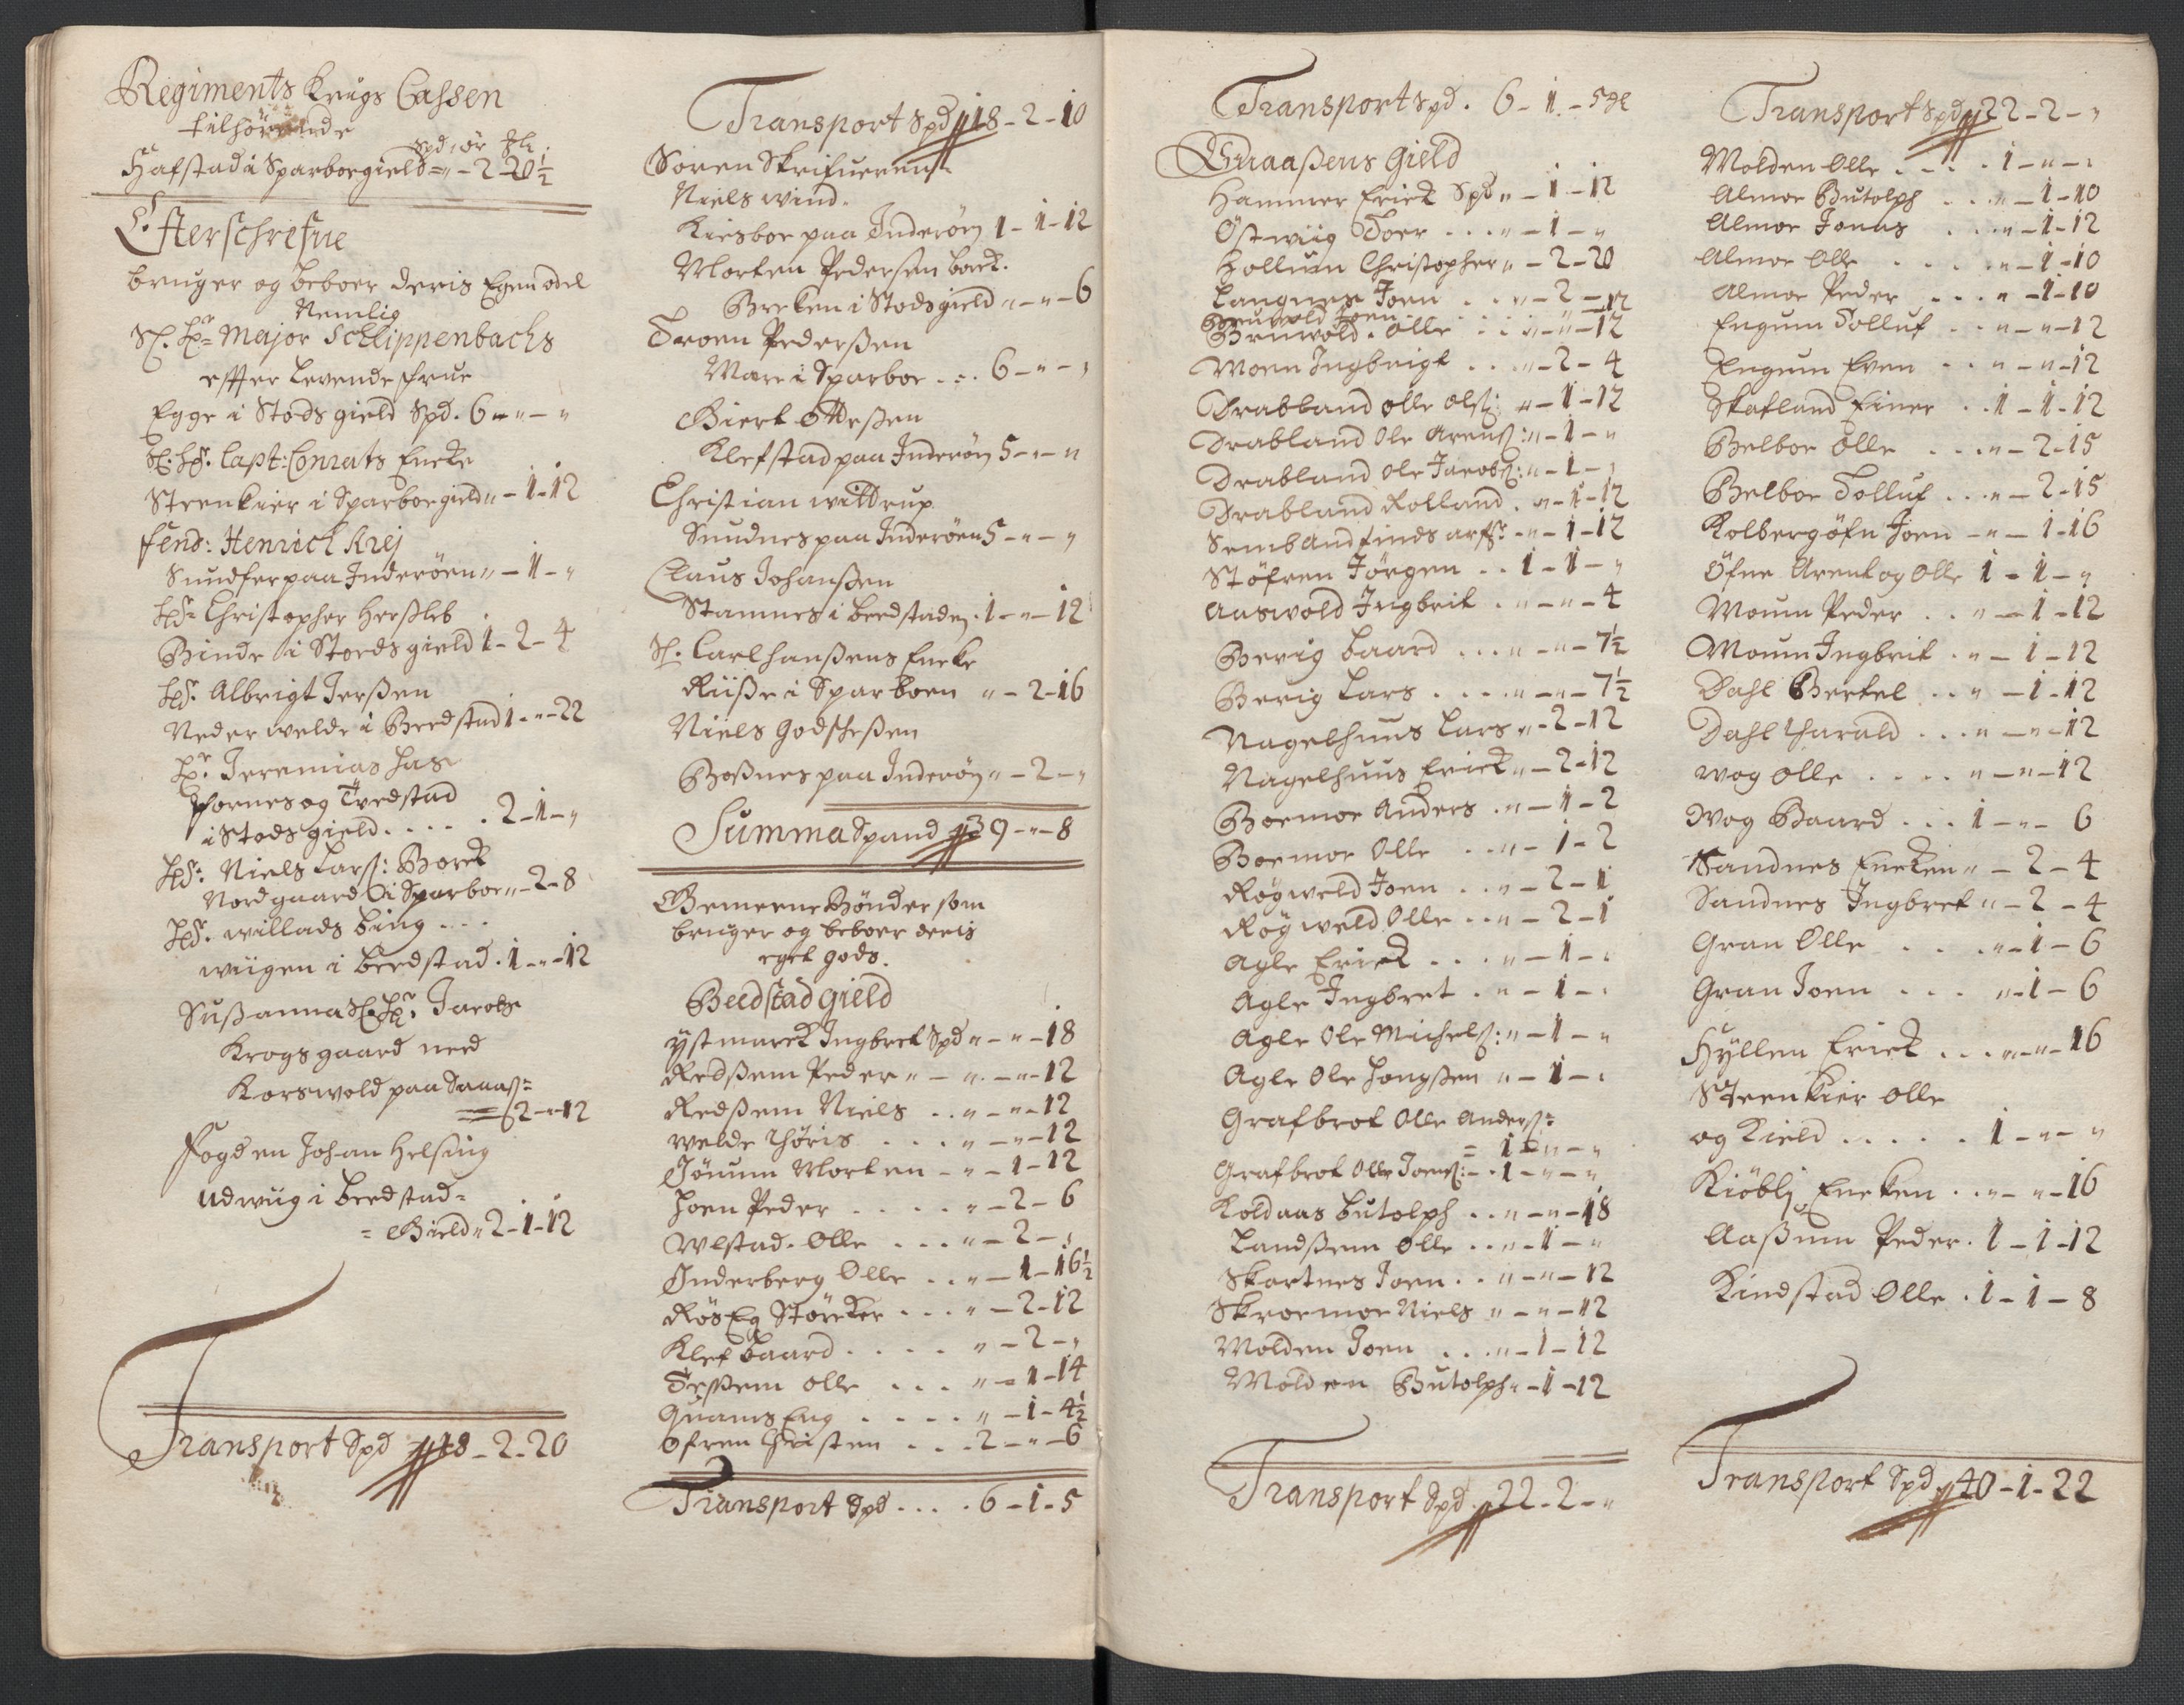 Regiments Krigs Cassen
tilhørende
Spd, ør Ml:
Hafstad i Sparboegield = „ - 2 - 20½
Efterschrefne
bruger og beboer deris Egen odel
Nemlig
Sl. Hr Major Schlippenbachs
effter levende frue
Egge i Stods gield Spd. 6 - „ - „
Sl: Hr. Capt: Conrats Encke
Steenkier i Sparboegield „ - 1 - 12
fend: Henrich Krej
Sundfer paa Inderøen „ - 1 - „
Hr Christopher Herßleb
Binde i Stoeds gield 1 - 2 - 4
Hr. Albrigt Jerßen
Neder welde i Beedstad 1 - „ - 22
Hr. Jeremias has
Fornes og Tvedstad
i Stods gield . . . . . 2 - 1 - „
Hr: Niels Larß: Borck
Nordgaard i Sparboe „ - 2 - 8
Hr. willads bing . . .
wiigen i beedstad . 1 - „ - 12
Sußanna Sl. Hr. Jacobs
Krogsgaard med
Korswold paa Snaaß=
= 2 - „ - 12
Fogden Johan Helsing
Udwiig i beedstad=
= Gield „ 2 - 1 - 12
Transport Spd 18 - 2 - 20
Transport Spd 18 - 2 - 10
Søren Skrifuerens
Niels wind.
Kiesboe paa Inderøen 1 - 1 - 12
Morten Pedersen borck.
Breken i Stods gield „ - „ - 6
Troen Pederßen
Mære i Sparboe . . . 6 - „ - „
Biert Otteßen
Klefstad paa Inderøen 5 - „ - „
Christian wittrup
Sundnes paa Inderøen 5 - „ - „
Claus Johanßen
Stamnes i beedstaden . 1 - „ - 12
Sl. Carl hanßens Encke
Riiße i Sparboen „ - 2 - 16
Niels Godscheßen
Boßnes paa Inderøen „ - 2 - „
Summa Spand 39 - „ - 8
Gemeene Bønder som
bruger og beboer deris
eget gods.
Beedstad Gield
ystmarck Ingbret Spd „ - „ - 18
Redßem Peder „ - „ - 12
Redßem Niels . . „ - „ - 12
welde Thøris . . . „ - „ - 12
Jønum Morten - „ - 1 - 12
Hoen Peder . . . . „ - 2 - 6
Wlstad. Olle . . . „ - 2 - „
Inderberg Olle . . „ - 1 - 16½
Røs Eg Størcker . . . „ - 2 - 12
Klef baard . . . . „ - 2 - „
Tessem olle . . . „ - 1 - 14
Quams Eng . . . . „ - 1 - 4½
Ofren Christen . . . 2 - „ - 6
Transport Spd . . . . 6 - 1 - 5
Transport Spd . 6 - 1 - 5 Ml
Snaaßens Gield
Hammer Erick Spd „ - 1 - 12
Østwiig Toer . . . „ - 1 - „
Hollum Christopher „ - 2 - 20
Langnes Joen . . „ - 2 - „
Brunwold Joen . . „ - 12
Brunwold. Olle . . „ - „ - 12
Moen Ingbrigt . . „ - 2 - 4
Drabland olle olß: „ - 1 - 12
Drabland Ole Arenß: „ - 1 - „
Drabland Ole Jacobß: „ - 1 - „
Drabland Rolland . „ - 1 - 12
Semb Andfinds arfs: „ - 1 - 12
Støfren Jørgen . . 1 - 1 - „
Aaswold Ingbrit . „ - „ - 4
Berig baard . . . „ - „ - 7½
Berig Lars . . . . „ - „ - 7½
Nagelhuus Lars „ - 2 - 12
Nagelhuus Erick „ - 2 - 12
Boemoe Anders . „ - 1 - 2
Boemoe Olle . . „ - 1 - 2
Røgweld Joen . . „ - 2 - 1
Røgweld Olle . . „ - 2 - 1
Agle Erick . . . „ - 1 - „
Agle Ingbret . „ - 1 - „
Agle Ole Michelß: „ - 1 - „
Agle Ole Hongßen „ - 1 - „
Grafbrot Olle Anderß=
= 1 - „ - „
Grafbrot Olle Joenß: - 1 - „ - „
Koldaas Butolph . . „ - „ - 18
Landßem Olle . . „ - 1 - „
Skartnes Joen . . „ - „ - 12
Skroemoe Niels „ - „ - 12
Molden Joen . . . „ - 1 - 12
Molden Butolph „ - 1 - 12
Transport Spd . 22 - 2 - „
Transport Spd 22 - 2 - „
Molden Olle . . . . 1 - „ - „
Almoe Butolph . . . „ - 1 - 10
Almoe Jonas . . . „ - 1 - 12
Almoe Olle . . . . „ - 1 - 10
Almoe Peder . . . „ - 1 - 10
Engum Tolluf . . „ - „ - 12
Engum Even . . „ - „ - 12
Skafland Einer . . 1 - 1 - 12
Belboe Olle . . . „ - 2 - 15
Belboe Tolluf . . . „ - 2 - 15
Kolbergøfn Joen - „ - 1 - 16
Øfne Arent og Olle 1 - 1 - „
Moum Peder . . „ - 1 - 12
Moum Ingbrit . „ - 1 - 12
Dahl Bertel . . „ - 1 - 12
Dahl Harald . . . „ - „ - 12
wog Olle . . . . „ - „ - 12
Wog Baard . . . 1 - „ - 6
Sandnes Encken „ - 2 - 4
Sandnes Ingbret „ - 2 - 4
Gran Olle . . . . „ - 1 - 6
Gran Joen . . . „ - 1 - 6
Hyllen Erick . . . „ - „ - 16
Steenkier Olle
og Kield . . . . . 1 - „ - „
Kiøblj Encken . . „ - „ - 16
Aaßum Peder . 1 - 1 - 12
Kindstad Olle . 1 - 1 - 8
Transport Spd . 40 - 1 - 22